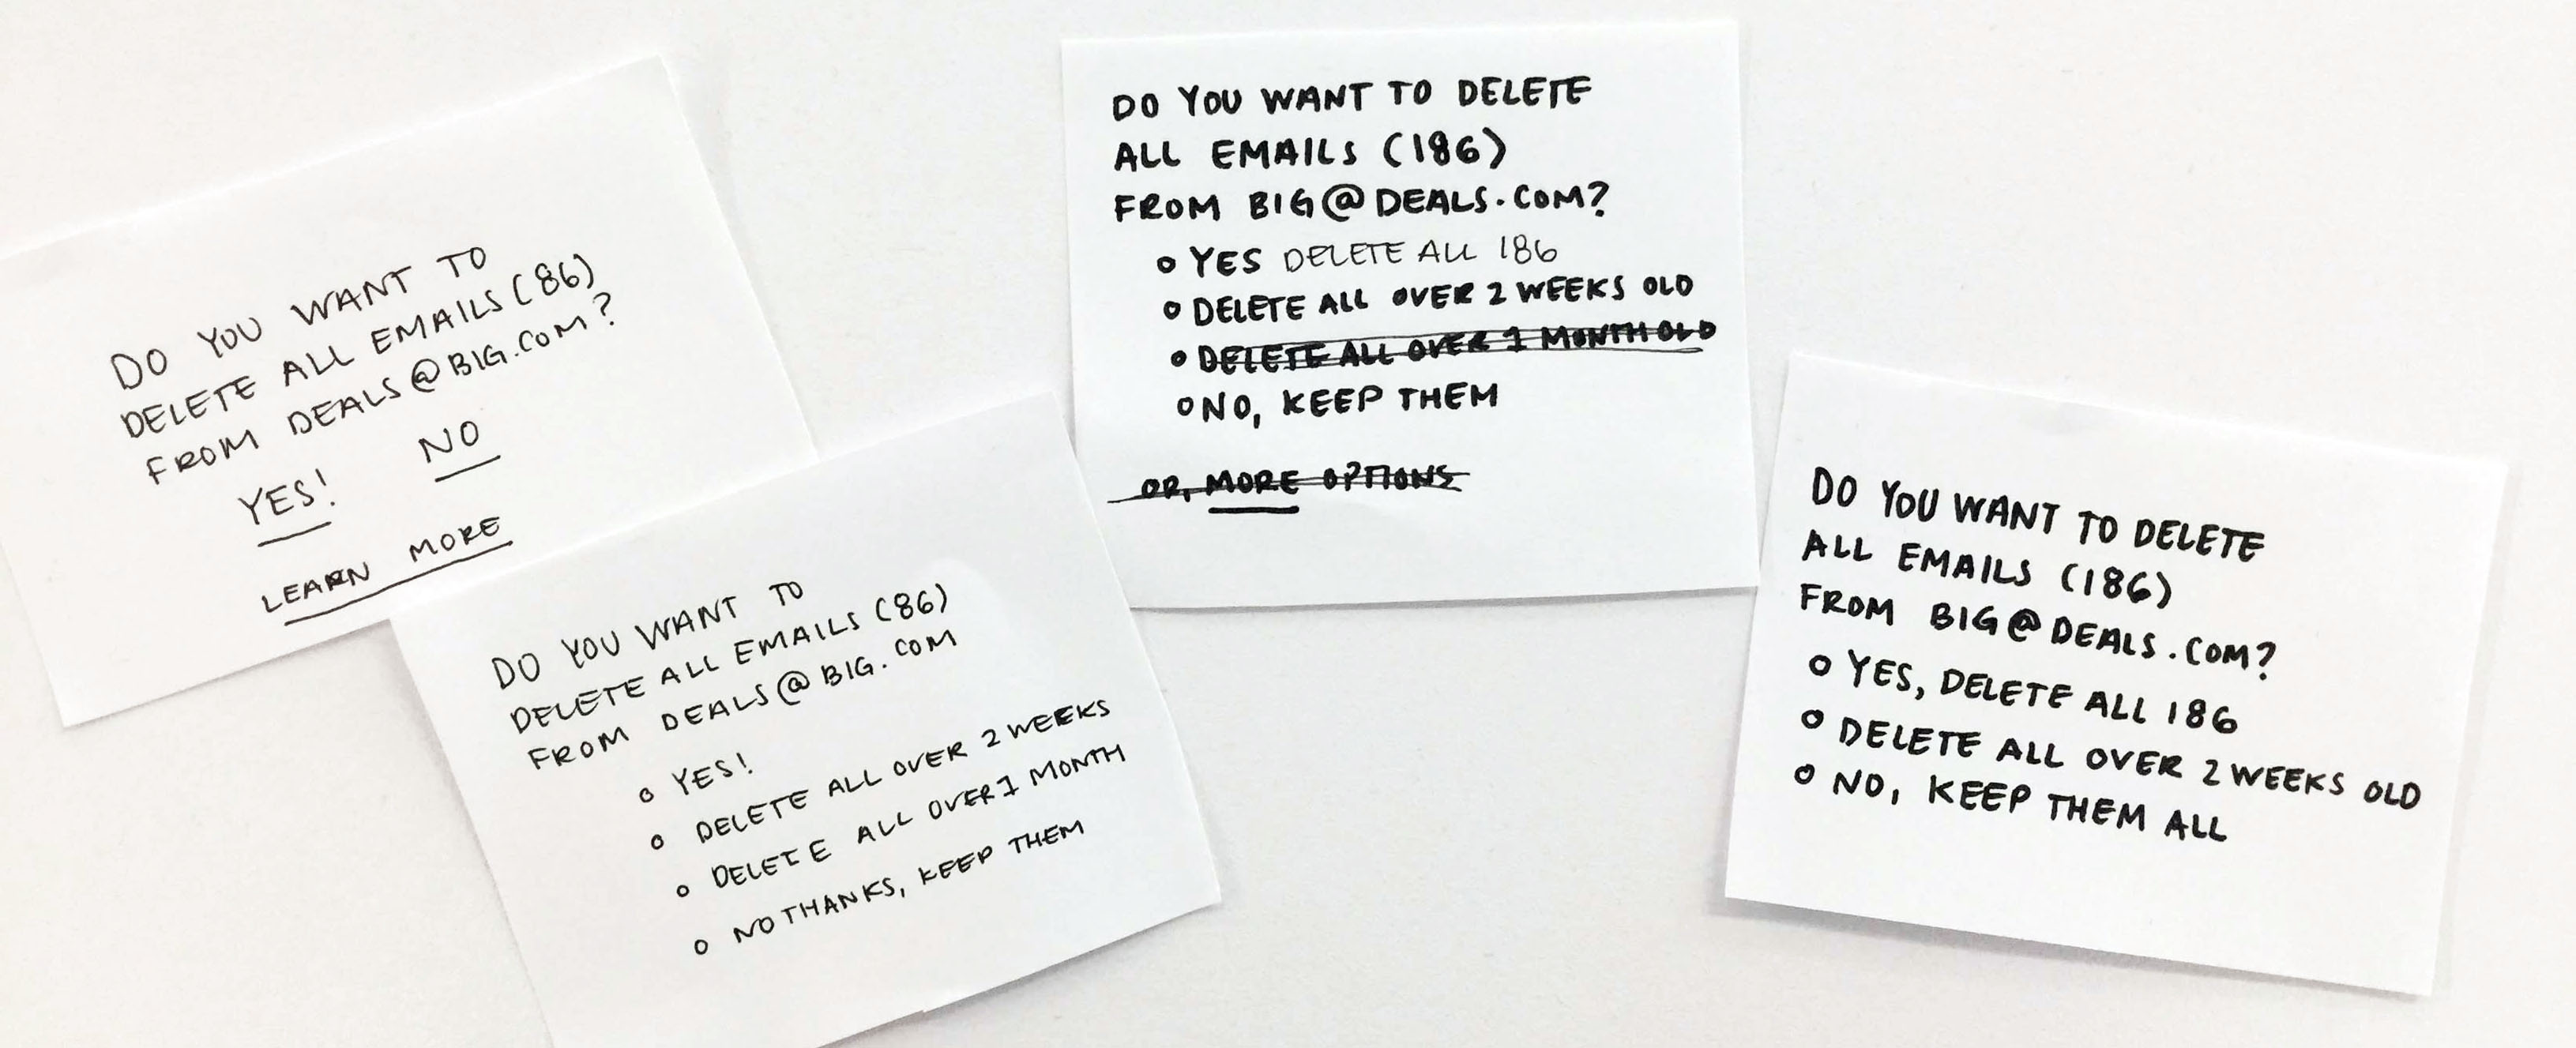 DO YOU WANT TO
DELETE ALL EMAILS (86)
FROM DEALS@BIG.COM?
YES! NO
LEARN MORE
DO YOU WANT TO
DELETE ALL EMAILS (86)
FROM DEALS@BIG.COM
o YES!
o DELETE ALL OVER 2 WEEKS
o DELETE ALL OVER 1 MONTH
o NO THANKS, KEEP THEM
DO YOU WANT TO DELETE
ALL EMAILS (186)
FROM BIG@DEALS.COM?
o YES DELETE ALL 186
o DELETE ALL OVER 2 WEEKS OLD
o DELETE ALL OVER 1 MONTH OLD
o NO, KEEP THEM
OR, MORE OPTIONS
DO YOU WANT TO DELETE
ALL EMAILS (186)
FROM BIG@DEALS.COM?
o YES, DELETE ALL 186
o DELETE ALL OVER 2 WEEKS OLD
o NO, KEEP THEM ALL